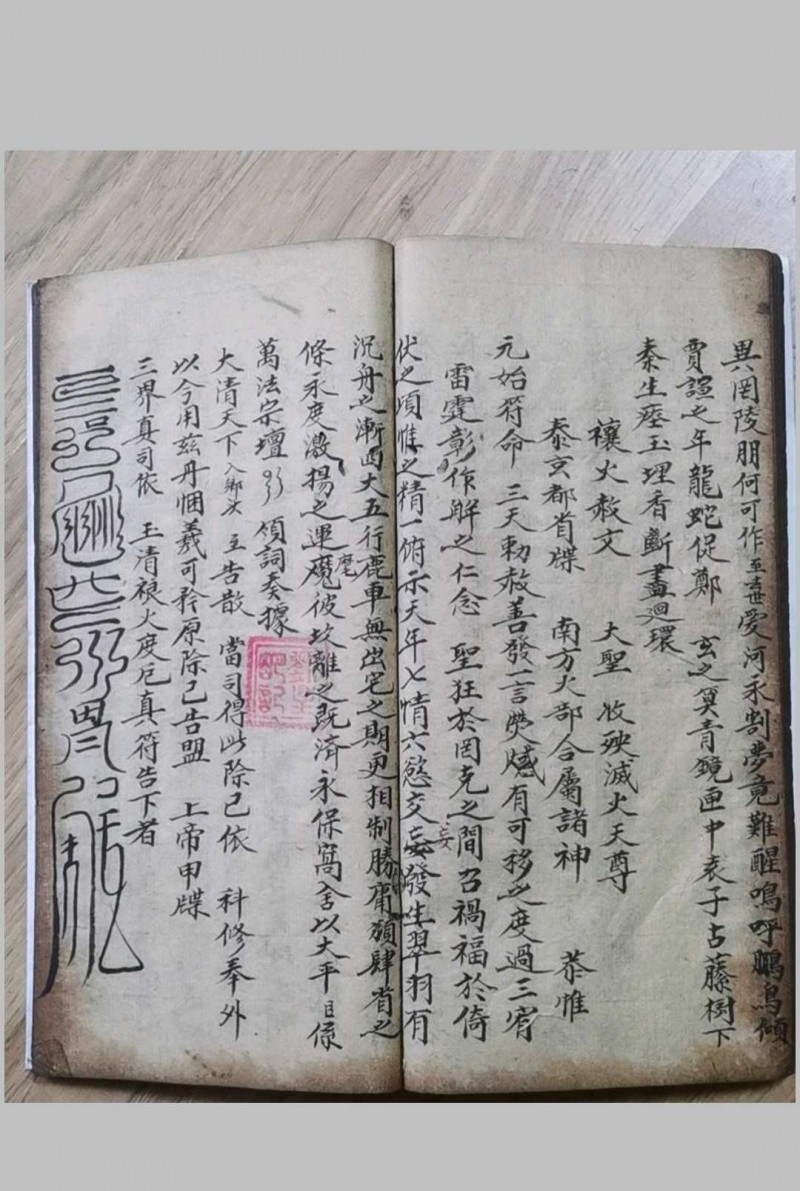 異罔陵朋何可作至去世愛河永割夢竟難醒嗚呼鵬鳥傾
賈誼之年龍蛇促鄭 玄之冥青鏡匣中哀子古藤樹下
秦生瘞玉埋香斷畫迴環
禳火赦文 大聖收殃滅火天尊
泰京都省牒 南方火部合屬諸神 恭惟
元始符命 三天勅赦善發一言熒惑有可移之度過三宥
雷霆彰作解之仁念 聖狂於罔克之間召禍福於倚
伏之頃惟之精一俯示天年七情六慾交妄發生翠羽有
沉舟之漸西大五行鹿車無出宅之期更相制勝庸頒肆省之
條永度激揚之運魔彼坎離之既済永保窩舍以太平目係
萬法宗壇 領詞奏據
大清天下入鄉次 主告散 當司得此除已依 科修奉外
以今用玆丹悃義可矜原除已告盟 上帝申牒
三界真司依 玉清禳火度厄真符告下者